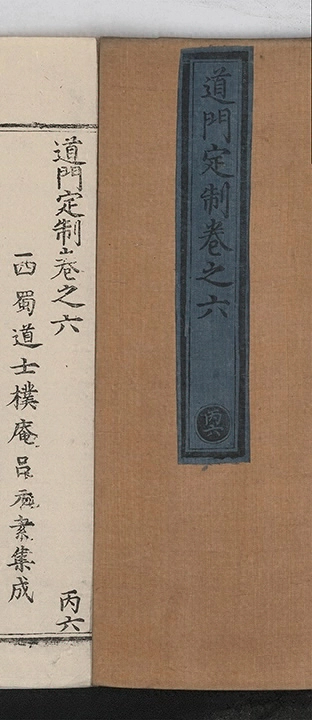 道門定制卷之六
丙六
道門定制卷之六
西蜀道士樸庵呂元素集成
丙六